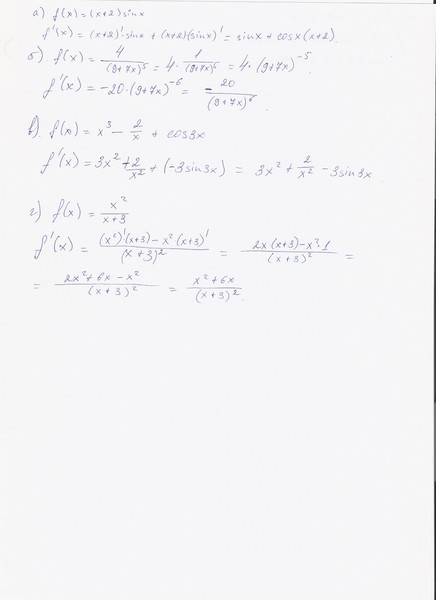 а) f(x) = (x+2) sinx
f'(x) = (x+2)'·sinx + (x+2)(sinx)' = sinx + cosx(x+2).
б) f(x) = 4/(9+7x)^5 = 4·1/(9+7x)^5 = 4·(9+7x)^-5
f'(x) = -20·(9+7x)^-6 = -20/(9+7x)^6.
в) f(x) = x^3 - 2/x + cos3x
f'(x) = 3x^2 + 2/x^2 + (-3sin3x) = 3x^2 + 2/x^2 - 3sin3x
г) f(x) = x^2/(x+3)
f'(x) = ((x^2)'(x+3) - x^2(x+3)')/(x+3)^2 = (2x(x+3) - x^2·1)/(x+3)^2 =
= (2x^2+6x-x^2)/(x+3)^2 = (x^2+6x)/(x+3)^2.